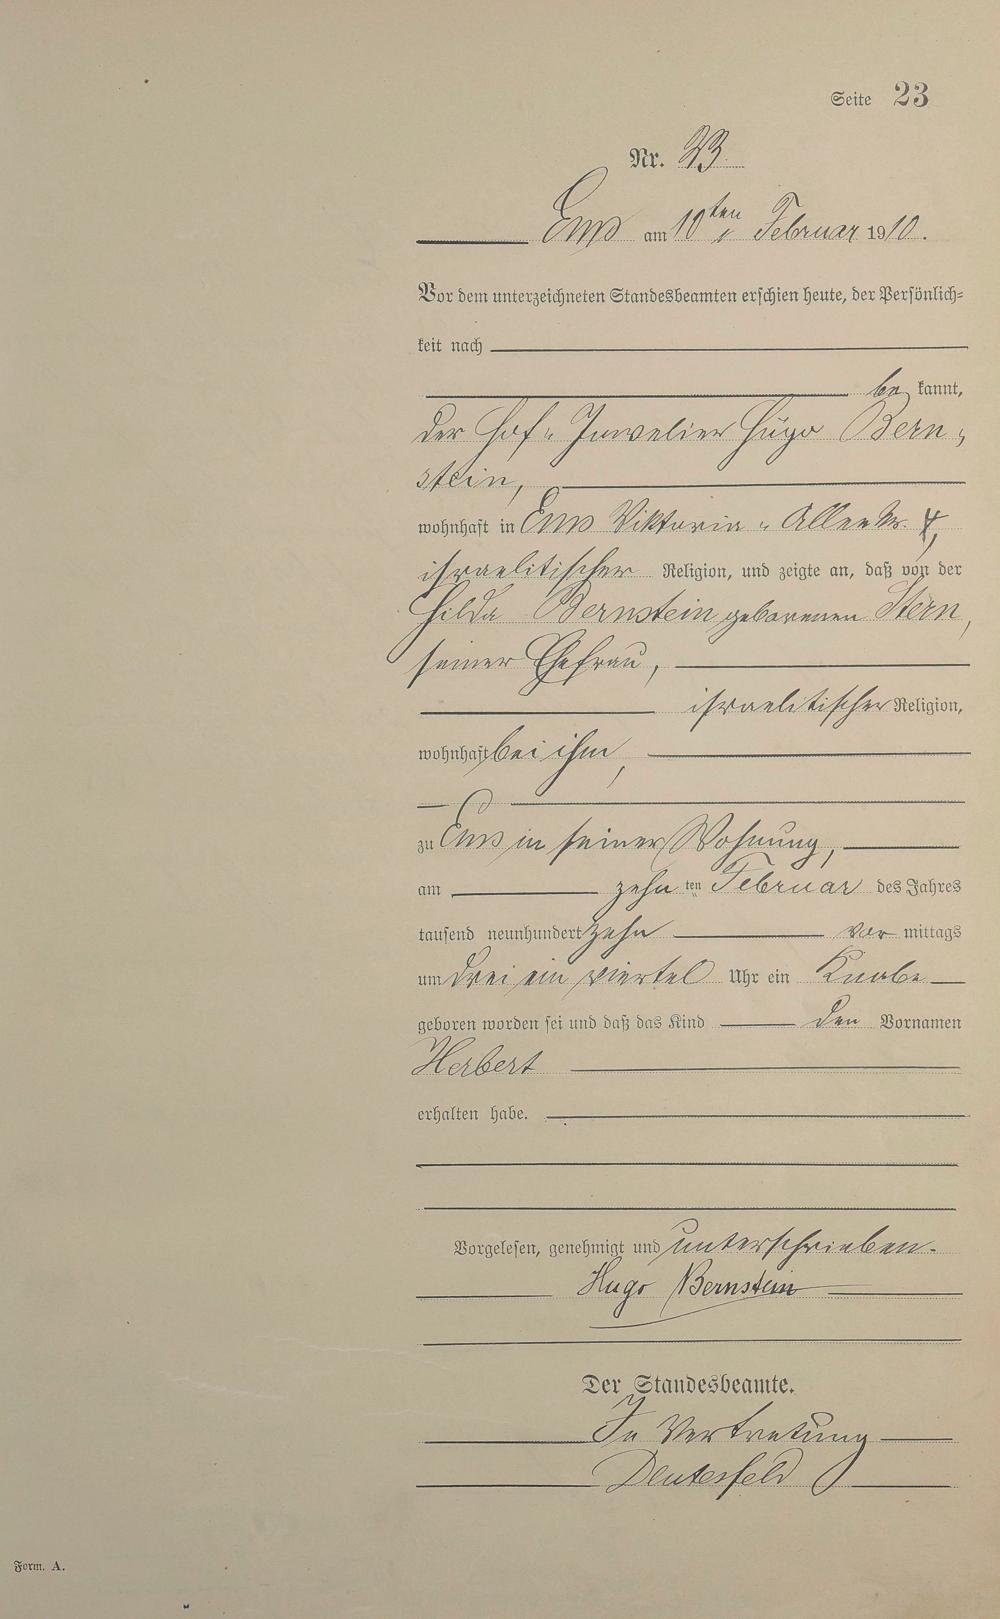 Seite 23
Nr. 23.
Ems am 10ten Februar 1910.
Vor dem unterzeichneten Standesbeamten erschien heute, der Persönlich-
keit nach
be kannt,
der Hof-Juwelier Hugo Bern-
stein,
wohnhaft in Ems Viktoria-Allee Nr. 4,
israelitischer Religion, und zeigte an, daß von der
Hilda Bernstein geborenen Stern,
seiner Ehefrau,
israelitischer Religion,
wohnhaft bei ihm,
zu Ems in seiner Wohnung,
am zehn ten Februar des Jahres
tausend neunhundert zehn vor mittags
um drei ein viertel Uhr ein Knabe
geboren worden sei und daß das Kind den Vornamen
Herbert
erhalten habe.
Vorgelesen, genehmigt und unterschrieben.
Hugo Bernstein
Der Standesbeamte.
In Vertretung
Form. A.